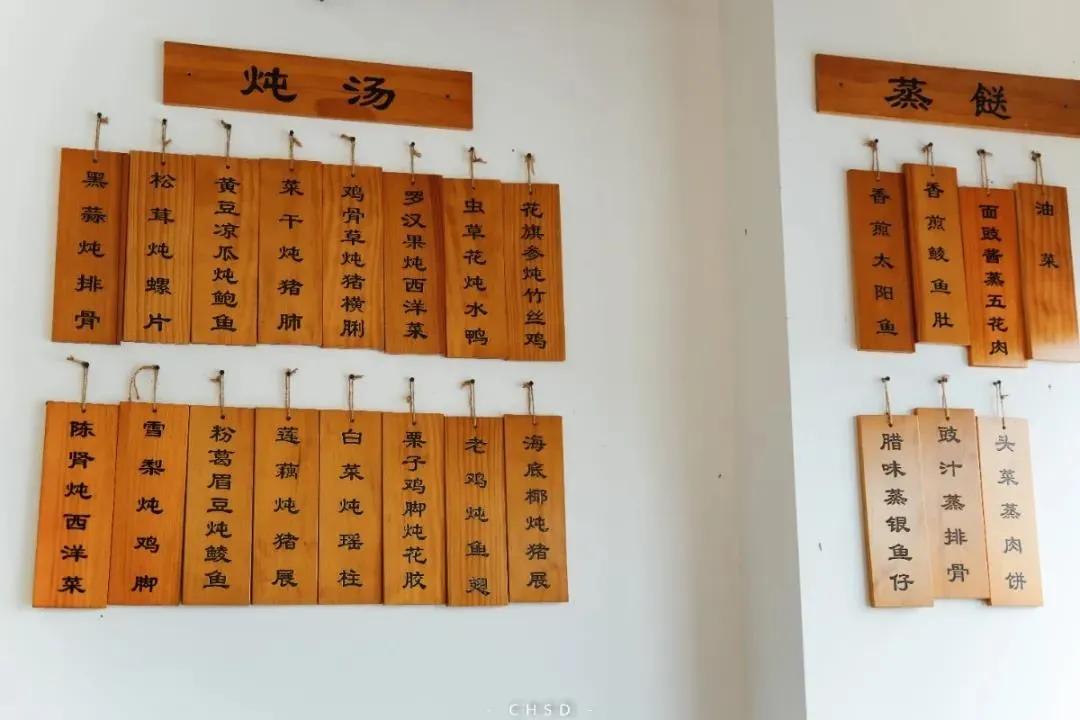 炖汤
黑蒜炖排骨
松茸炖螺片
黄豆凉瓜炖鲍鱼
菜干炖猪肺
鸡骨草炖猪横脷
罗汉果炖西洋菜
虫草花炖水鸭
花旗参炖竹丝鸡
陈肾炖西洋菜
雪梨炖鸡脚
粉葛眉豆炖鲮鱼
莲藕炖猪展
白菜炖瑶柱
栗子鸡脚炖花胶
老鸡炖鱼翅
海底椰炖猪展
蒸餸
香煎太阳鱼
香煎鲮鱼肚
面豉酱蒸五花肉
油菜
腊味蒸银鱼仔
豉汁蒸排骨
头菜蒸肉饼
CHSD